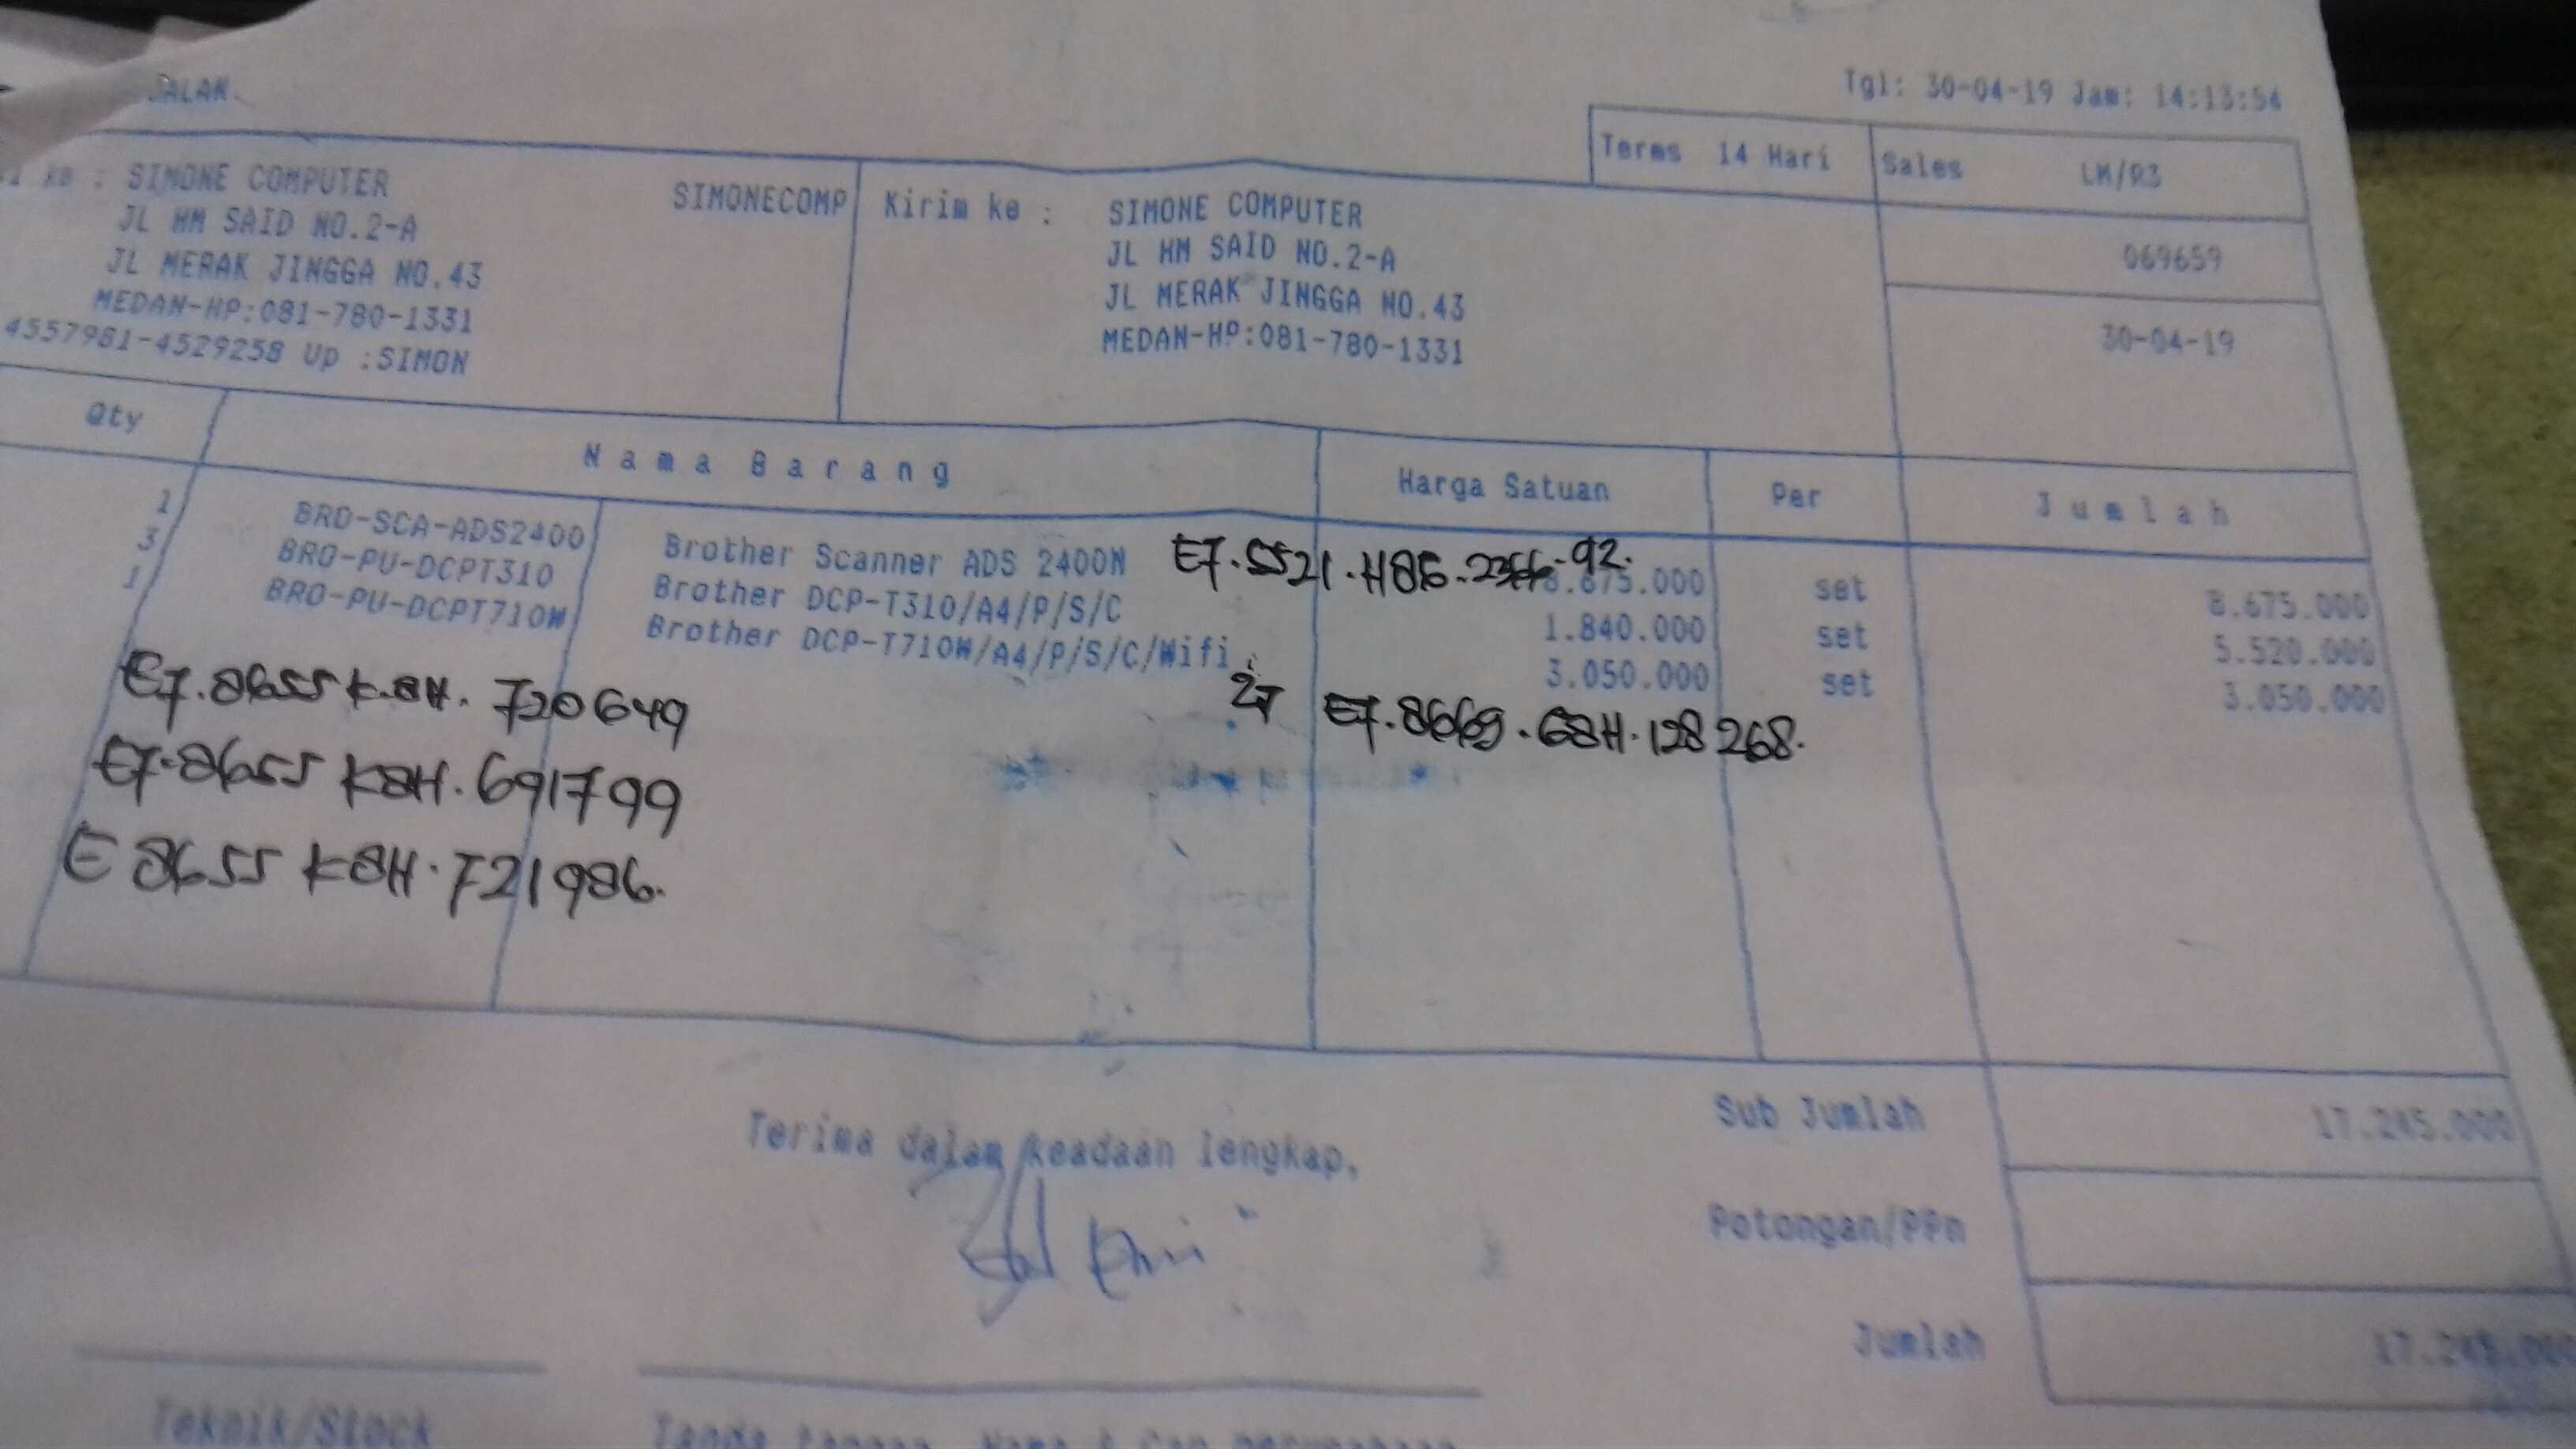 JALAN
Tgl: 30-04-19 Jam: 14:13:54
Terms 14 Hari Sales LM/R3
ke : SIMONE COMPUTER SIMONECOMP Kirim ke : SIMONE COMPUTER
JL HM SAID NO.2-A JL HM SAID NO.2-A 069659
JL MERAK JINGGA NO.43 JL MERAK JINGGA NO.43
MEDAN-HP:081-780-1331 MEDAN-HP:081-780-1331 30-04-19
4557981-4529258 Up :SIMON
Qty Nama Barang Harga Satuan Per Jumlah
1 BRO-SCA-ADS2400 Brother Scanner ADS 2400N 8.675.000 set 8.675.000
E7.5521.H8 92.
3 BRO-PU-DCPT310 Brother DCP-T310/A4/P/S/C 1.840.000 set 5.520.000
1 BRO-PU-DCPT710W Brother DCP-T710W/A4/P/S/C/Wifi 3.050.000 set 3.050.000
E7.8655 K8H. 720649
E7.8669.G8H.128268.
E7.8655 K8H.691799
E 8655 K8H.721986.
Sub Jumlah 17.245.000
Terima dalam keadaan lengkap,
Potongan/PPn
Jumlah 17.245.000
Teknik/Stock